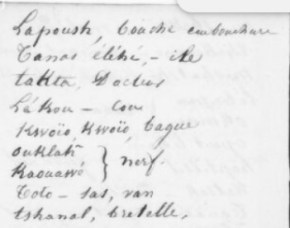 Lapoush, Couche embouchure
Tanas élésé, - ile
takta, Docteur
Lékou - cou
Kwoïo, Kwoïo, bague
ouklak } nerf.
Kaouawo
Toto - sas, van
Tshanal, bretelle,